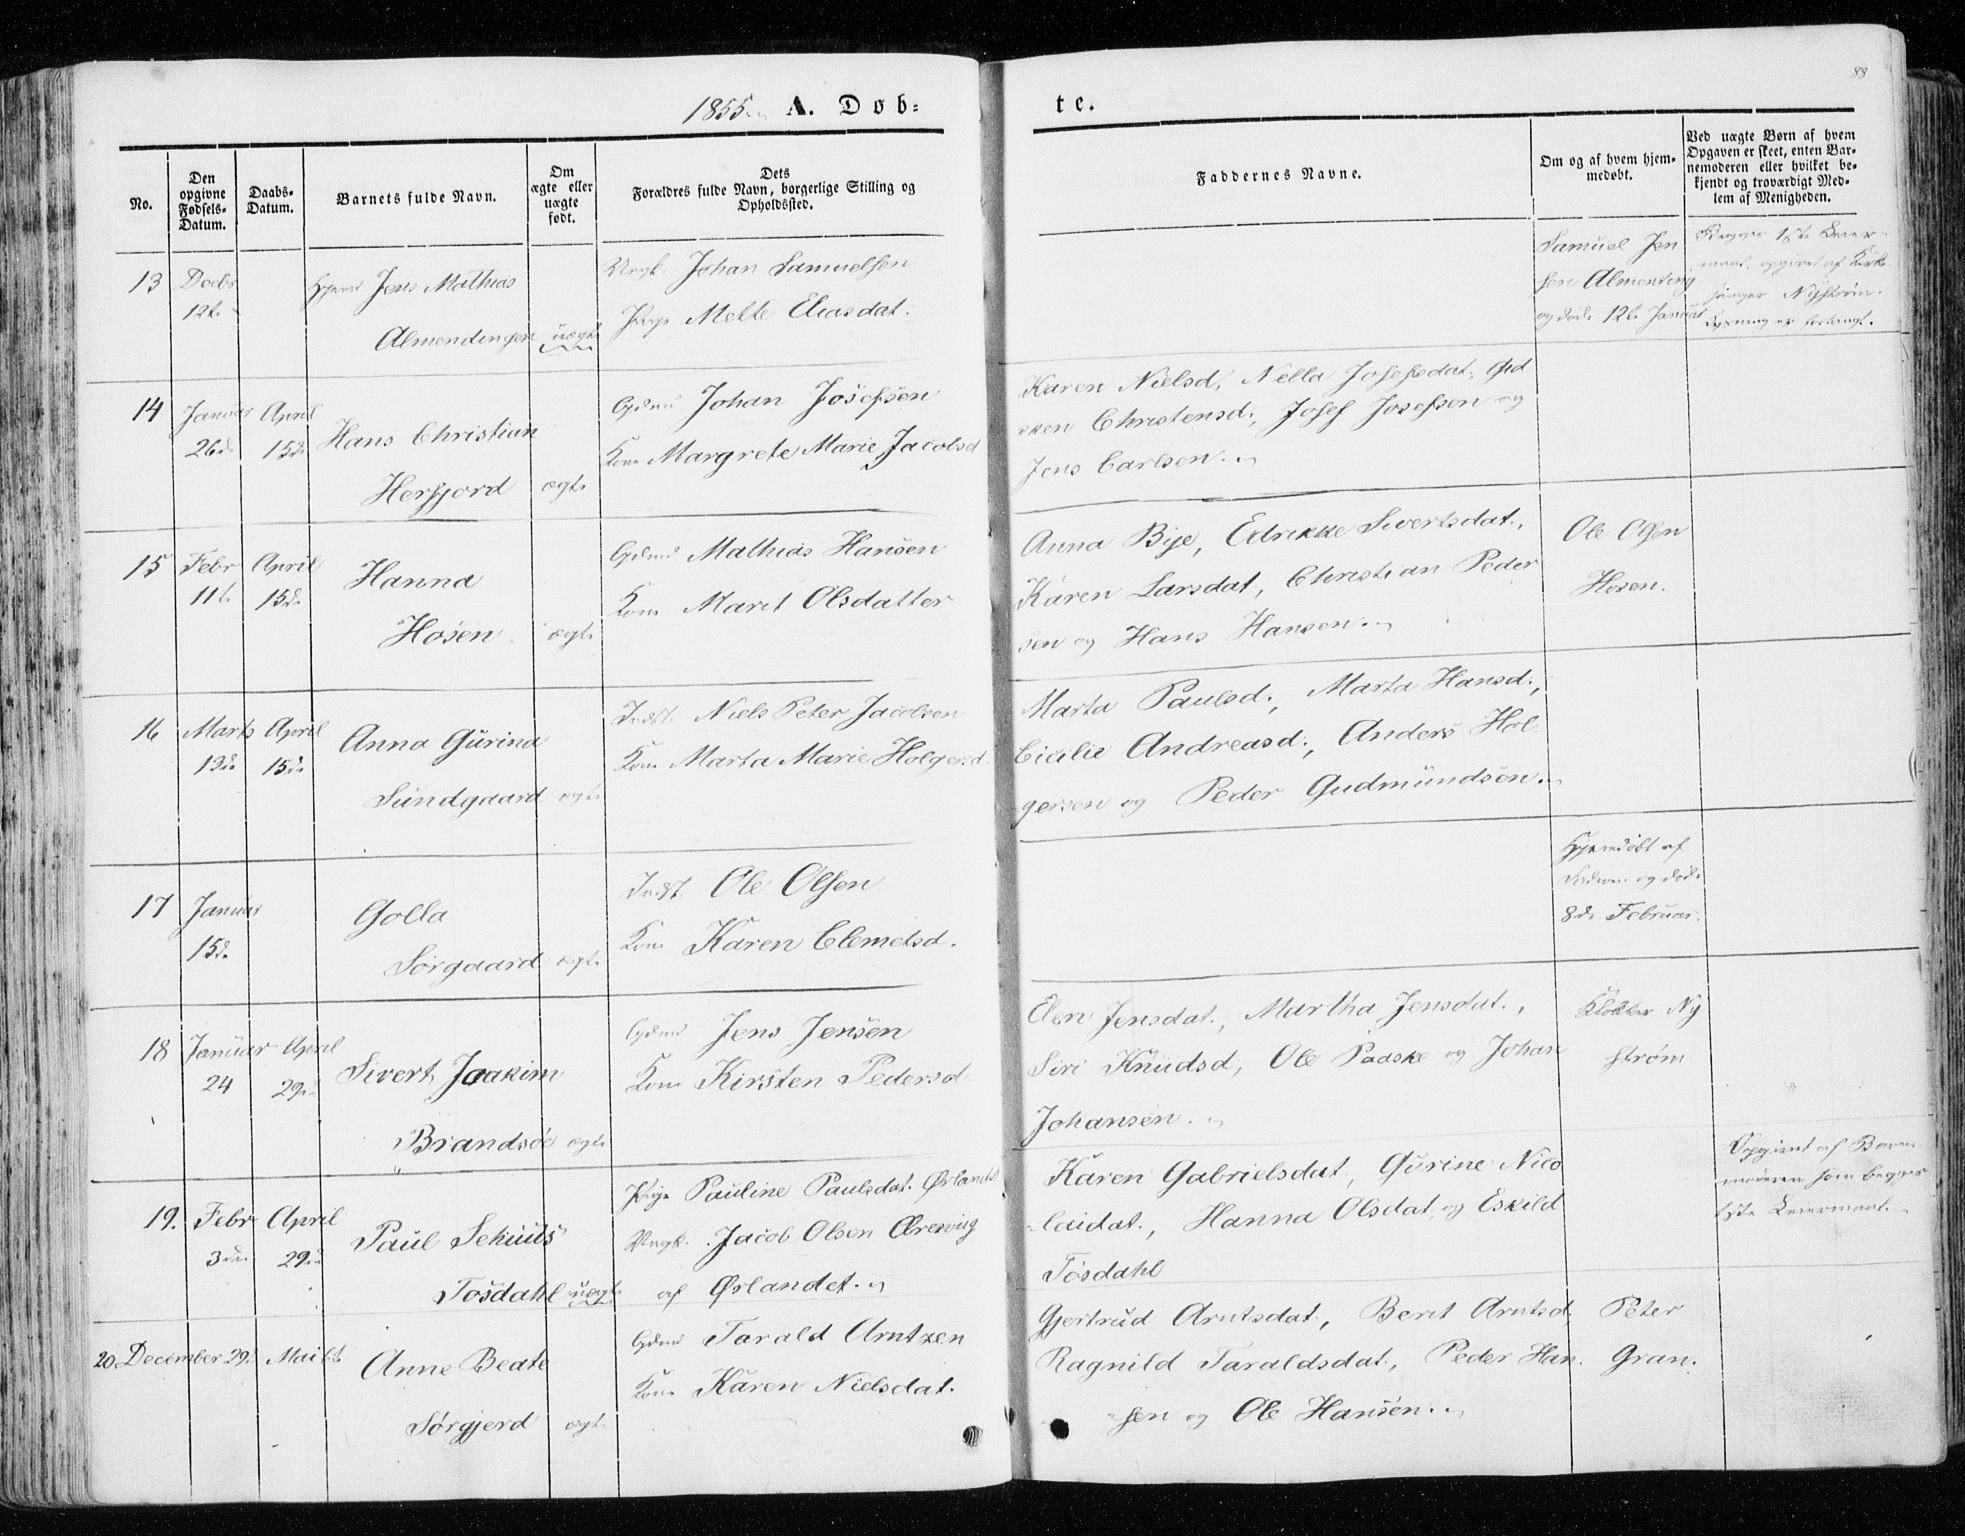 88
1855. A. Døb-
te.
No.
Den opgivne Fødsels-Datum.
Daabs-Datum.
Barnets fulde Navn.
Om ægte eller uægte født.
Dets Forældres fulde Navn, borgerlige Stilling og Opholdssted.
Faddernes Navne.
Om og af hvem hjem-medøbt.
Ved uægte Børn af hvem Opgaven er skeet, enten Bar-nemoderen eller hvilket be-kjendt og troværdigt Med-lem af Menigheden.
13 Decbr 12te
Jens Mathias
Almendingen uægte
Ungk. Johan Samuelsen
Pige Mette Eliasdat.
Samuel Jen
sen Almending
og døde 12te Januar
Begges 1ste Leier-
maal, opgivet af Kirke
sanger Nystrøm.
14 Januar 26de April 15de
Hans Christian
Herfjord ægte
Gdmd Johan Josefsen
Kone Margrete Marie Jacobsd.
Karen Nielsd, Nella Josefsdat,
Christensd., Josef Josefsen og
Jens Carlsen.
15 Febr 11te April 15de
Hanna
Hosen ægte
Gdmd Mathias Hansen
Kone Marit Olsdatter
Anna Bye, Edrikke Sivertsdat.,
Karen Larsdat, Christian Peder
sen og Hans Hansen.
Ole Olsen
Hosen.
16 Marts 13de April 15de
Anna Gurina
Sundgaard ægte
Indst. Niels Peter Jacobsen
Kone Marta Marie Holgersd.
Marta Paulsd., Marta Hansd.,
Cicilie Andreasd., Anders Hol
gersen og Peder Gudmundsen.
17 Januar 15de
Golla
Sørgaard ægte
Indst. Ole Olsen
Kone Karen Clemetsd.
Hjemdøbt af
og døde
8de Februar.
18 Januar 24 April 29de
Sivert Joakim
Brandsøe ægte
Gdmd Jens Jensen
Kone Kirsten Pedersd
Elen Jensdat., Martha Jensdat.,
Siri Knudsd, Ole Paaske og Johan
Johansen.
Klokker Ny
strøm
19. Febr 3die April 29de
Paul
Tøsdahl uægte
Pige Pauline Paulsdat. Ørlandet
Ungk. Jacob Olsen
af Ørlandet.
Karen Gabrielsdat, Gurine Nico
laidat., Hanna Olsdat, og Eskild
Tøsdahl
Opgivet af Barne
moderen som begges
1ste Leiermaal.
20. December 29de Mai 6te
Anne Beate
Sørgjerd ægte
Gdmd Tarald Arntzen
Kone Karen Nielsdat.
Gjertrud Arntsdat., Berit Arntsd.
Ragnild Taraldsdat., Peder Han
sen og Ole Hansen.
Peter
Gran.